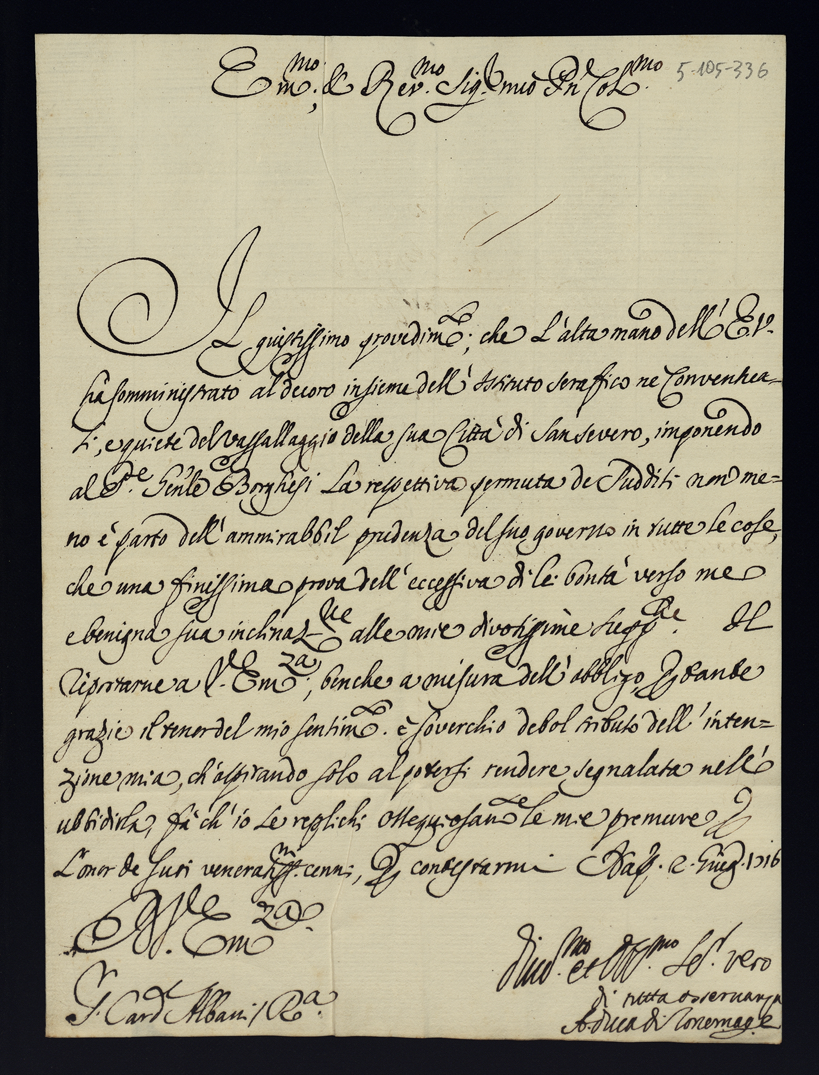 Em.mo & Rev.mo Sig.r mio P.n Col.mo
5-105-336
Il giustissimo provedim.to, che l'alta mano dell' E. V.
hà somministrato al decoro insieme dell' Istituto serafico ne Conventua=
li, e quiete del vassallaggio della sua Città di Sansevero, imponendo
al P.re Gen'le Borghesi la respettiva permuta de Sudditi non me=
no è parto dell' ammirabbil prudenza del suo governo in tutte le cose,
che una finissima prova dell' eccessiva di lei bontà verso me
e benigna sua inclinaz.ne alle mie divotissime supp.che. Il
riportarne a V.ra Em.za, benche a misura dell' obbligo,
grazie il tenor del mio sentim.to è soverchio debol tributo dell' inten=
zione mia, ch' aspirando solo al potersi rendere segnalata nell'
ubbidirla, fà ch' io le replichi ossequiosam.te le mie premure
l'onor de suoi cenni, contestarmi Nap. 2. Giug. 1716
V. Em.za
S.r Card.le Albani / R.a
Div.mo et Obb.mo Se.r vero
di tutta osservanza
Il Duca di Torremag.e